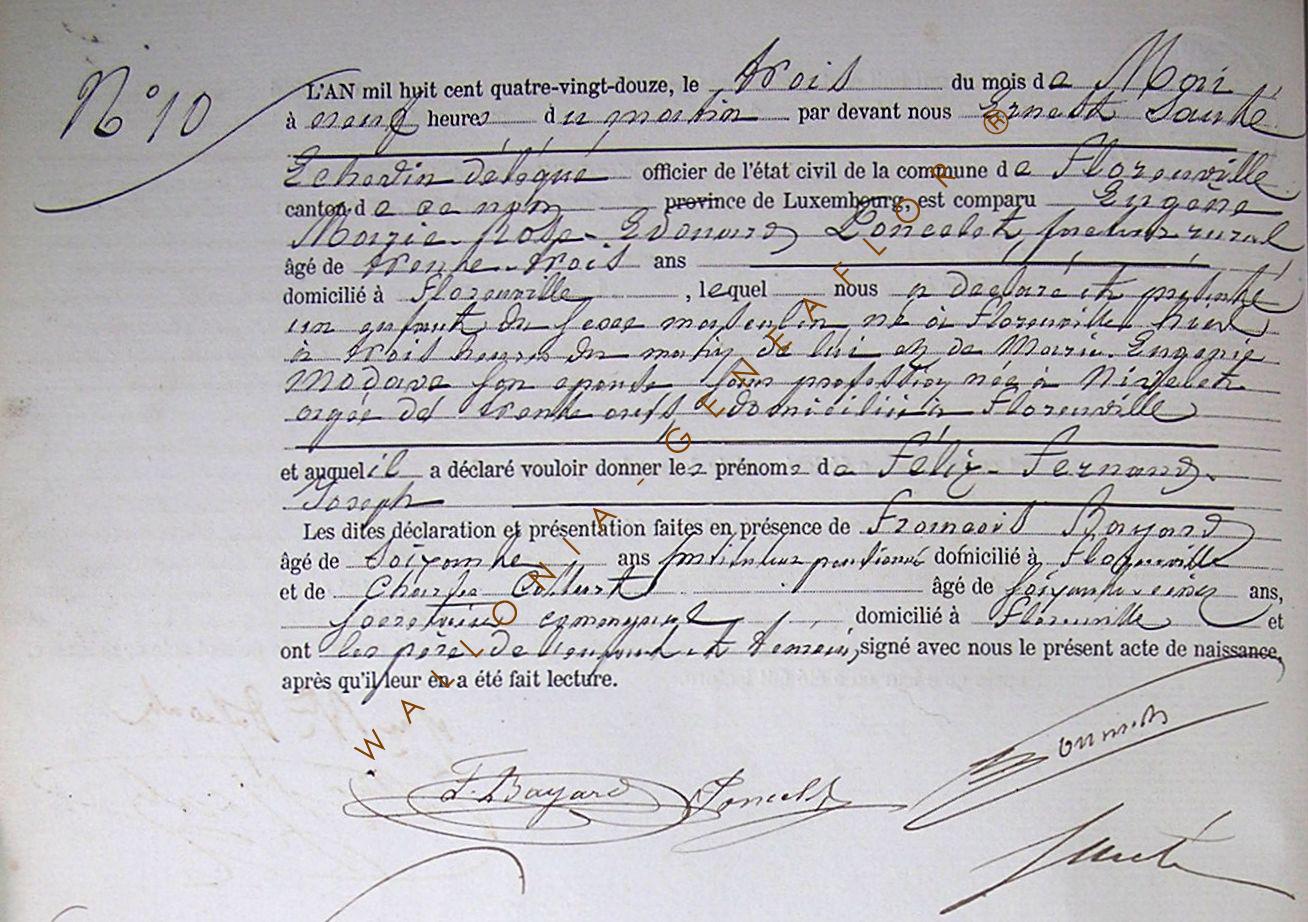 N° 10
L'AN mil huit cent quatre-vingt-douze, le trois du mois de Mai
à neuf heures du matin par devant nous Ernest Sauté
Echevin délégué officier de l'état civil de la commune de Florenville
canton de ce nom province de Luxembourg, est comparu Eugène
Marie Edouard Poncelet, facteur rural
âgé de trente-trois ans
domicilié à Florenville, lequel nous a déclaré et présenté
un enfant du sexe masculin né à Florenville hier
à trois heures du matin de lui et de Marie Eugénie
Modave son épouse sans profession née à
âgée de trente domiciliée à Florenville
et auquel il a déclaré vouloir donner les prénoms de Félix-Fernand-
Joseph
Les dites déclaration et présentation faites en présence de François Bayard
âgé de soixante ans instituteur pensionné domicilié à Florenville
et de Charles âgé de soixante-cinq ans,
secrétaire communal domicilié à Florenville et
ont les père de l'enfant et témoins, signé avec nous le présent acte de naissance,
après qu'il leur en a été fait lecture.
F. Bayard Poncelet
Sauté
WALLONIA-GENEAFLOR ®